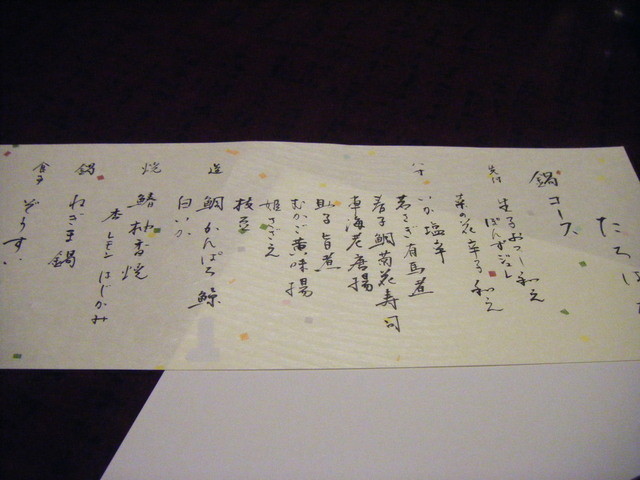 鍋コース
先付
ぽんずジュレ
菜の花辛子和え
八寸
いか塩辛
わかさぎ有馬煮
春子鯛菊花寿司
車海老唐揚
助子旨煮
むかご黄味揚
姫さざえ
枝豆
造
鯛 かんぱち 鯨
白いか
焼
鰆柚香焼
杏 レモン はじかみ
鍋
ねぎま鍋
食事
ぞうすい